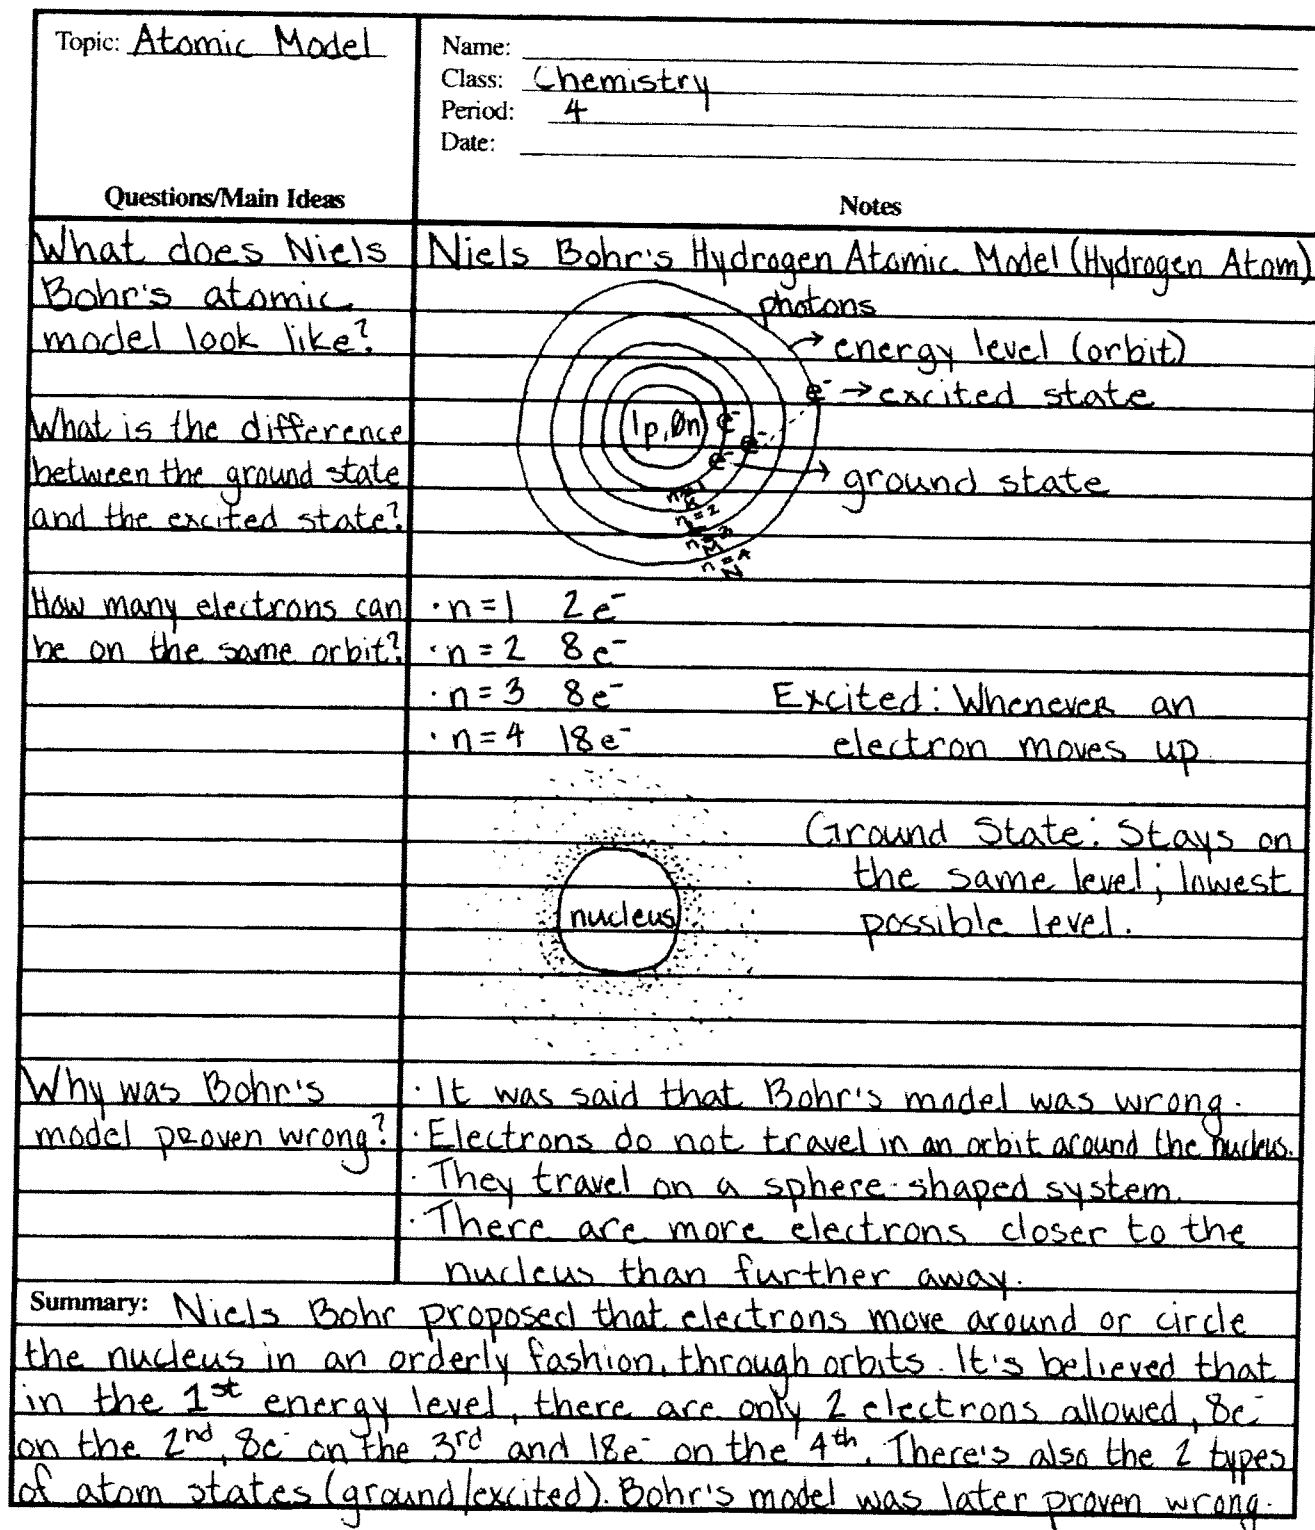 Topic: Atomic Model
Name:
Class: Chemistry
Period: 4
Date:
Questions/Main Ideas
Notes
What does Niels
Bohr's atomic
model look like?
What is the difference
between the ground state
and the excited state?
How many electrons can
be on the same orbit?
Niels Bohr's Hydrogen Atomic Model (Hydrogen Atom)
photons
→ energy level (orbit)
e⁻ → excited state
1p, 0n
e⁻
e⁻
e⁻
→ ground state
n=1
K
n=2
L
n=3
M
n=4
N
· n=1 2e⁻
· n=2 8e⁻
· n=3 8e⁻
· n=4 18e⁻
Excited: Whenever an
electron moves up
Ground State: Stays on
the same level; lowest
possible level.
nucleus
Why was Bohr's
model proven wrong?
· It was said that Bohr's model was wrong.
· Electrons do not travel in an orbit around the nucleus.
· They travel on a sphere-shaped system.
· There are more electrons closer to the
nucleus than further away.
Summary: Niels Bohr proposed that electrons move around or circle
the nucleus in an orderly fashion, through orbits. It's believed that
in the 1st energy level, there are only 2 electrons allowed, 8e⁻
on the 2nd, 8e⁻ on the 3rd and 18e⁻ on the 4th. There's also the 2 types
of atom states (ground/excited). Bohr's model was later proven wrong.